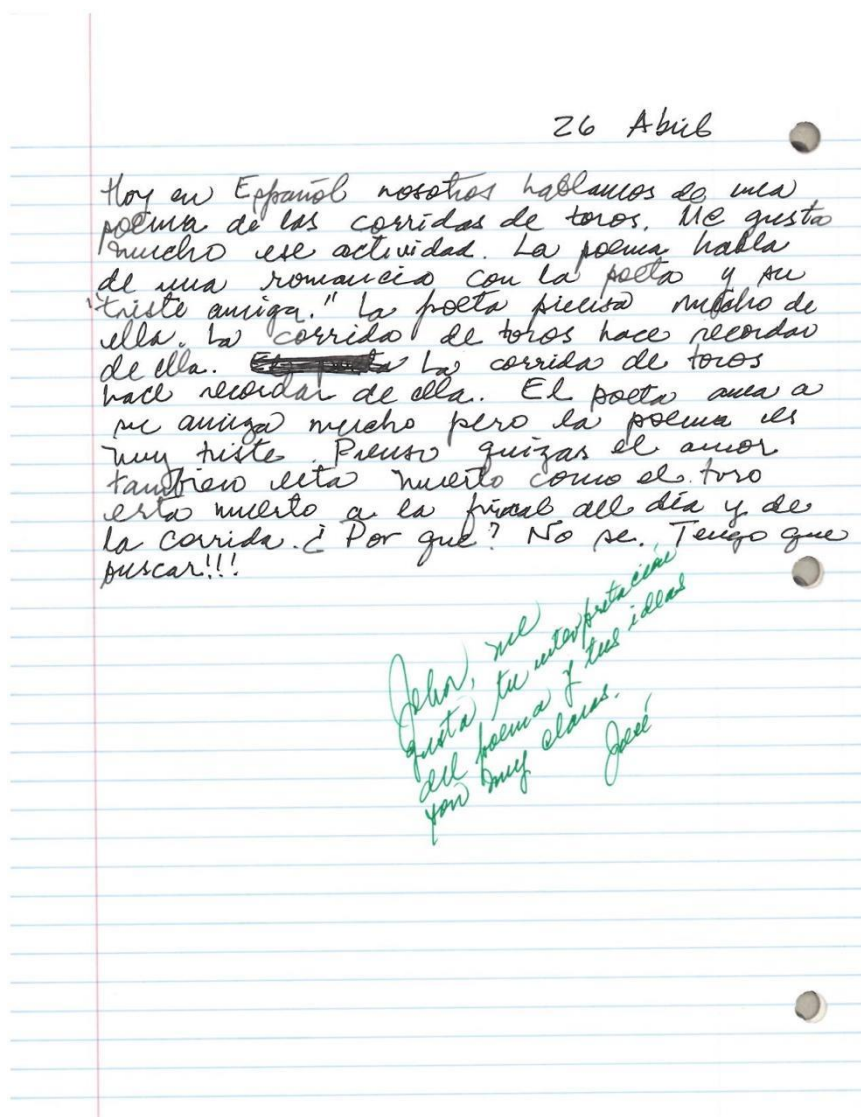 26 Abril
Hoy en Español nosotros hablamos de una
poema de las corridas de toros. Me gusta
mucho ese actividad. La poema habla
de una romancia con la poeta y su
"triste amiga." La poeta piensa mucho de
ella. La corrida de toros hace recordar
de ella. La corrida de toros
hace recordar de ella. El poeta ama a
su amiga mucho pero la poema es
muy triste. Pienso quizas el amor
tambien esta muerto como el toro
esta muerto a la final del día y de
la corrida. ¿Por que? No se. Tengo que
buscar!!!
John, me
gusta tu interpretación
del poema y tus ideas
son muy claras.
José